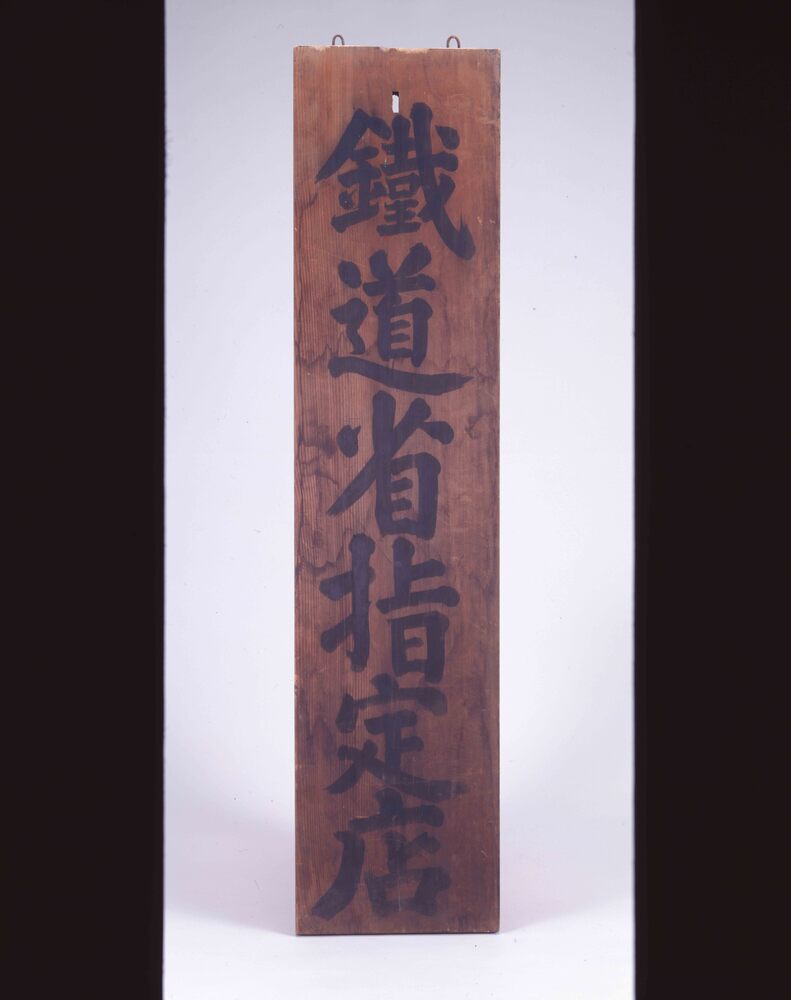 鐵道省指定店